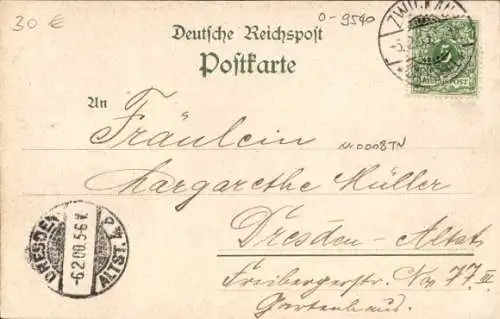 30 €
0-9540
Deutsche Reichspost
Postkarte
ZWICKAU
5
REICHSPOST
An
Fräulein
M0008TN
Margarethe Müller
Dresden-Altst.
Freibergerstr. No. 77. III
Gartenhaus.
DRESDEN
-6.2.00.5-6V
ALTST. 4